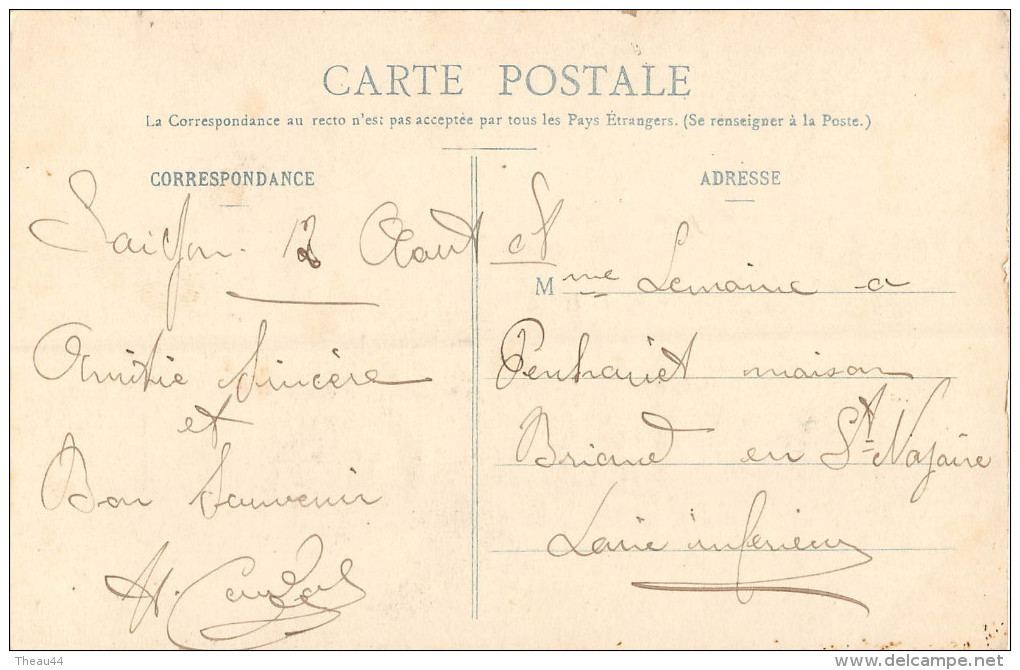 CARTE POSTALE
La Correspondance au recto n'est pas acceptée par tous les Pays Étrangers. (Se renseigner à la Poste.)
CORRESPONDANCE
Saigon. 12 Aout
Amitie Sincère
et
Bon Souvenir
H.
ADRESSE
Mme Lemoine a
Penhouet maison
Briand en St Nazaire
Loire inferieur
Theau44
delcampe.net